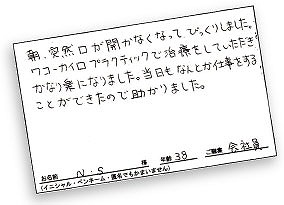 朝、突然口が開かなくなってびっくりしました。
ワコーカイロプラクティックで治療をしていただき
かなり楽になりました。当日もなんとか仕事をする
ことができたので助かりました。
お名前 N.S 様 年齢 38 ご職業 会社員
(イニシャル・ペンネーム・匿名でもかまいません)